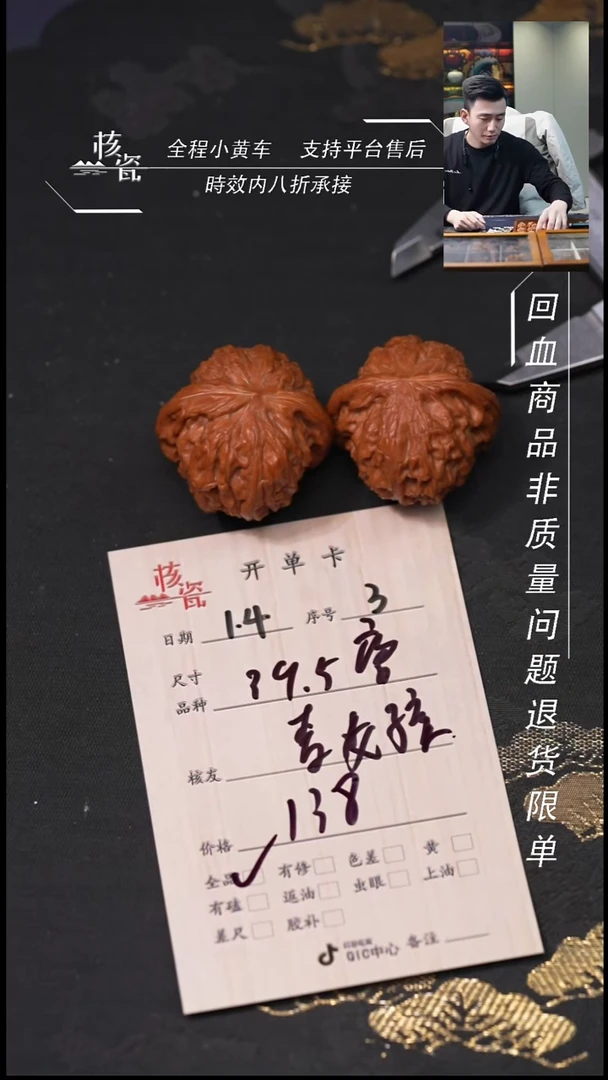 核瓷
全程小黄车 支持平台售后
時效内八折承接
回血商品非质量问题退货限单
核瓷
开单卡
日期 1.4 序号 3
尺寸
品种 39.5
核友
138
价格
全品 有修 色差 黄
有磕 返油 虫眼 上油
差尺 胶补
QIC中心 备注